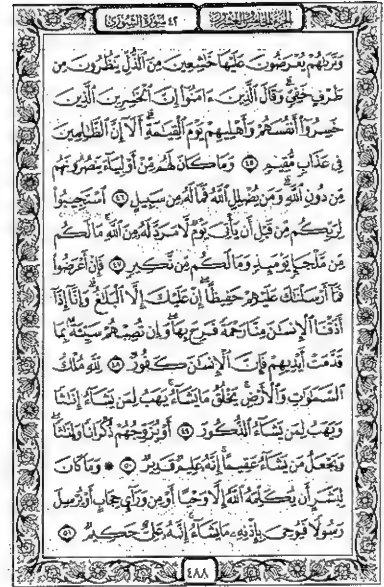 الجزء الخامس والعشرون ٤٢ سورة الشورى
وَتَرَىٰهُمْ يُعْرَضُونَ عَلَيْهَا خَٰشِعِينَ مِنَ ٱلذُّلِّ يَنظُرُونَ مِن
طَرْفٍ خَفِىٍّ وَقَالَ ٱلَّذِينَ ءَامَنُوٓا۟ إِنَّ ٱلْخَٰسِرِينَ ٱلَّذِينَ
خَسِرُوٓا۟ أَنفُسَهُمْ وَأَهْلِيهِمْ يَوْمَ ٱلْقِيَٰمَةِ أَلَآ إِنَّ ٱلظَّٰلِمِينَ
فِى عَذَابٍ مُّقِيمٍ ٤٥ وَمَا كَانَ لَهُم مِّنْ أَوْلِيَآءَ يَنصُرُونَهُم
مِّن دُونِ ٱللَّهِ وَمَن يُضْلِلِ ٱللَّهُ فَمَا لَهُۥ مِن سَبِيلٍ ٤٦ ٱسْتَجِيبُوا۟
لِرَبِّكُم مِّن قَبْلِ أَن يَأْتِىَ يَوْمٌ لَّا مَرَدَّ لَهُۥ مِنَ ٱللَّهِ مَا لَكُم
مِّن مَّلْجَإٍ يَوْمَئِذٍ وَمَا لَكُم مِّن نَّكِيرٍ ٤٧ فَإِنْ أَعْرَضُوا۟
فَمَآ أَرْسَلْنَٰكَ عَلَيْهِمْ حَفِيظًا إِنْ عَلَيْكَ إِلَّا ٱلْبَلَٰغُ وَإِنَّآ إِذَآ
أَذَقْنَا ٱلْإِنسَٰنَ مِنَّا رَحْمَةً فَرِحَ بِهَا وَإِن تُصِبْهُمْ سَيِّئَةٌۢ بِمَا
قَدَّمَتْ أَيْدِيهِمْ فَإِنَّ ٱلْإِنسَٰنَ كَفُورٌ ٤٨ لِّلَّهِ مُلْكُ
ٱلسَّمَٰوَٰتِ وَٱلْأَرْضِ يَخْلُقُ مَا يَشَآءُ يَهَبُ لِمَن يَشَآءُ إِنَٰثًا
وَيَهَبُ لِمَن يَشَآءُ ٱلذُّكُورَ ٤٩ أَوْ يُزَوِّجُهُمْ ذُكْرَانًا وَإِنَٰثًا
وَيَجْعَلُ مَن يَشَآءُ عَقِيمًا إِنَّهُۥ عَلِيمٌ قَدِيرٌ ٥٠ ۞ وَمَا كَانَ
لِبَشَرٍ أَن يُكَلِّمَهُ ٱللَّهُ إِلَّا وَحْيًا أَوْ مِن وَرَآئِ حِجَابٍ أَوْ يُرْسِلَ
رَسُولًا فَيُوحِىَ بِإِذْنِهِۦ مَا يَشَآءُ إِنَّهُۥ عَلِىٌّ حَكِيمٌ ٥١
٤٨٨